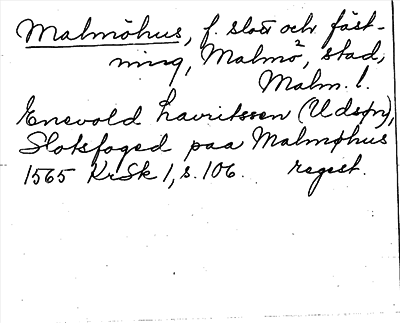 Malmöhus, f. slott och fäst-
ning, Malmö, stad,
Malm. l.
Enevold Lauritssen (Udsøn),
Slotsfoged paa Malmøhus
1565 KrSk 1, s. 106. regest.